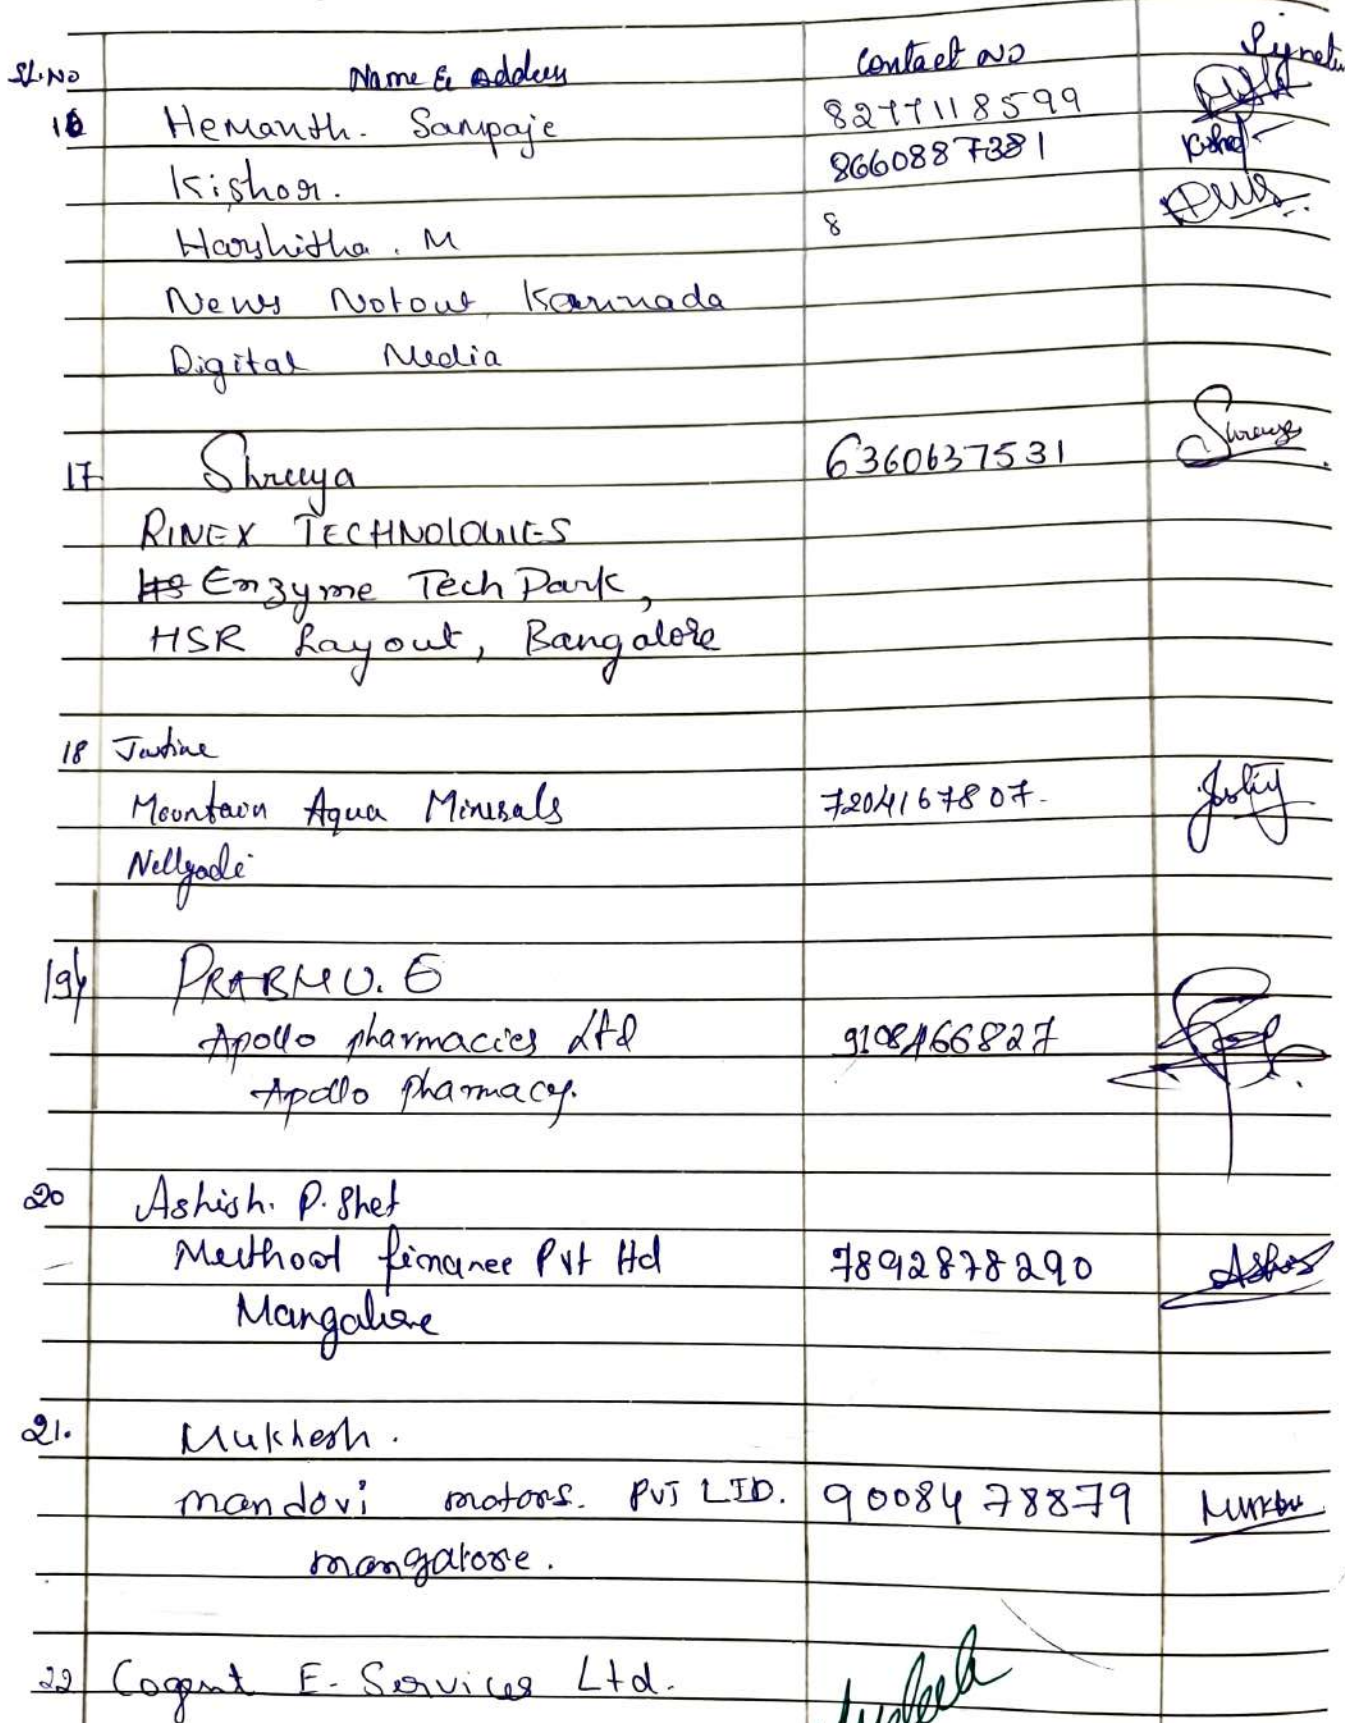 Sl.No Name & Address Contact No
16 Hemanth. Sampaje 8277118599
Kishor. 8660887381
Harshitha. M 8
News Notout Kannada
Digital Media
17 Shreeya 6360637531
RINEX TECHNOLOGIES
Enzyme Tech Park,
HSR Layout, Bangalore
18
Mountain Aqua Minerals 7204167807.
Nellyadi
19 PRABHU. G
Apollo pharmacies Ltd 9108466827
Apollo pharmacy.
20 Ashish. P. Shet
Muthoot finance Pvt ltd 7892878290
Mangalore
21. Mukhesh.
mandovi motors. PVT LTD. 9008478879
mangalore.
22 Cogent E-Services Ltd.